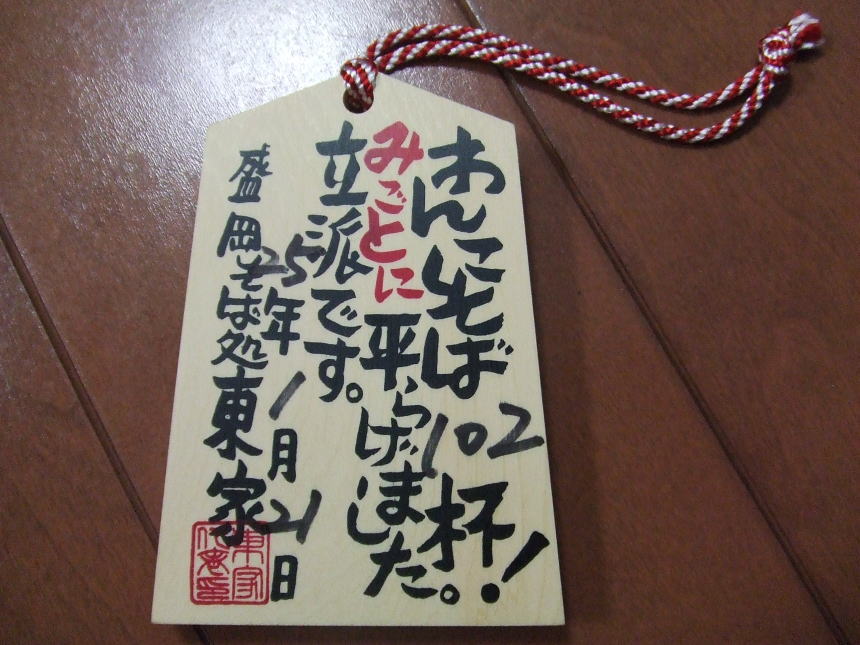 わんこそば102杯!
みごとに平らげました。
立派です。
25年1月21日
盛岡そば処東家
東家